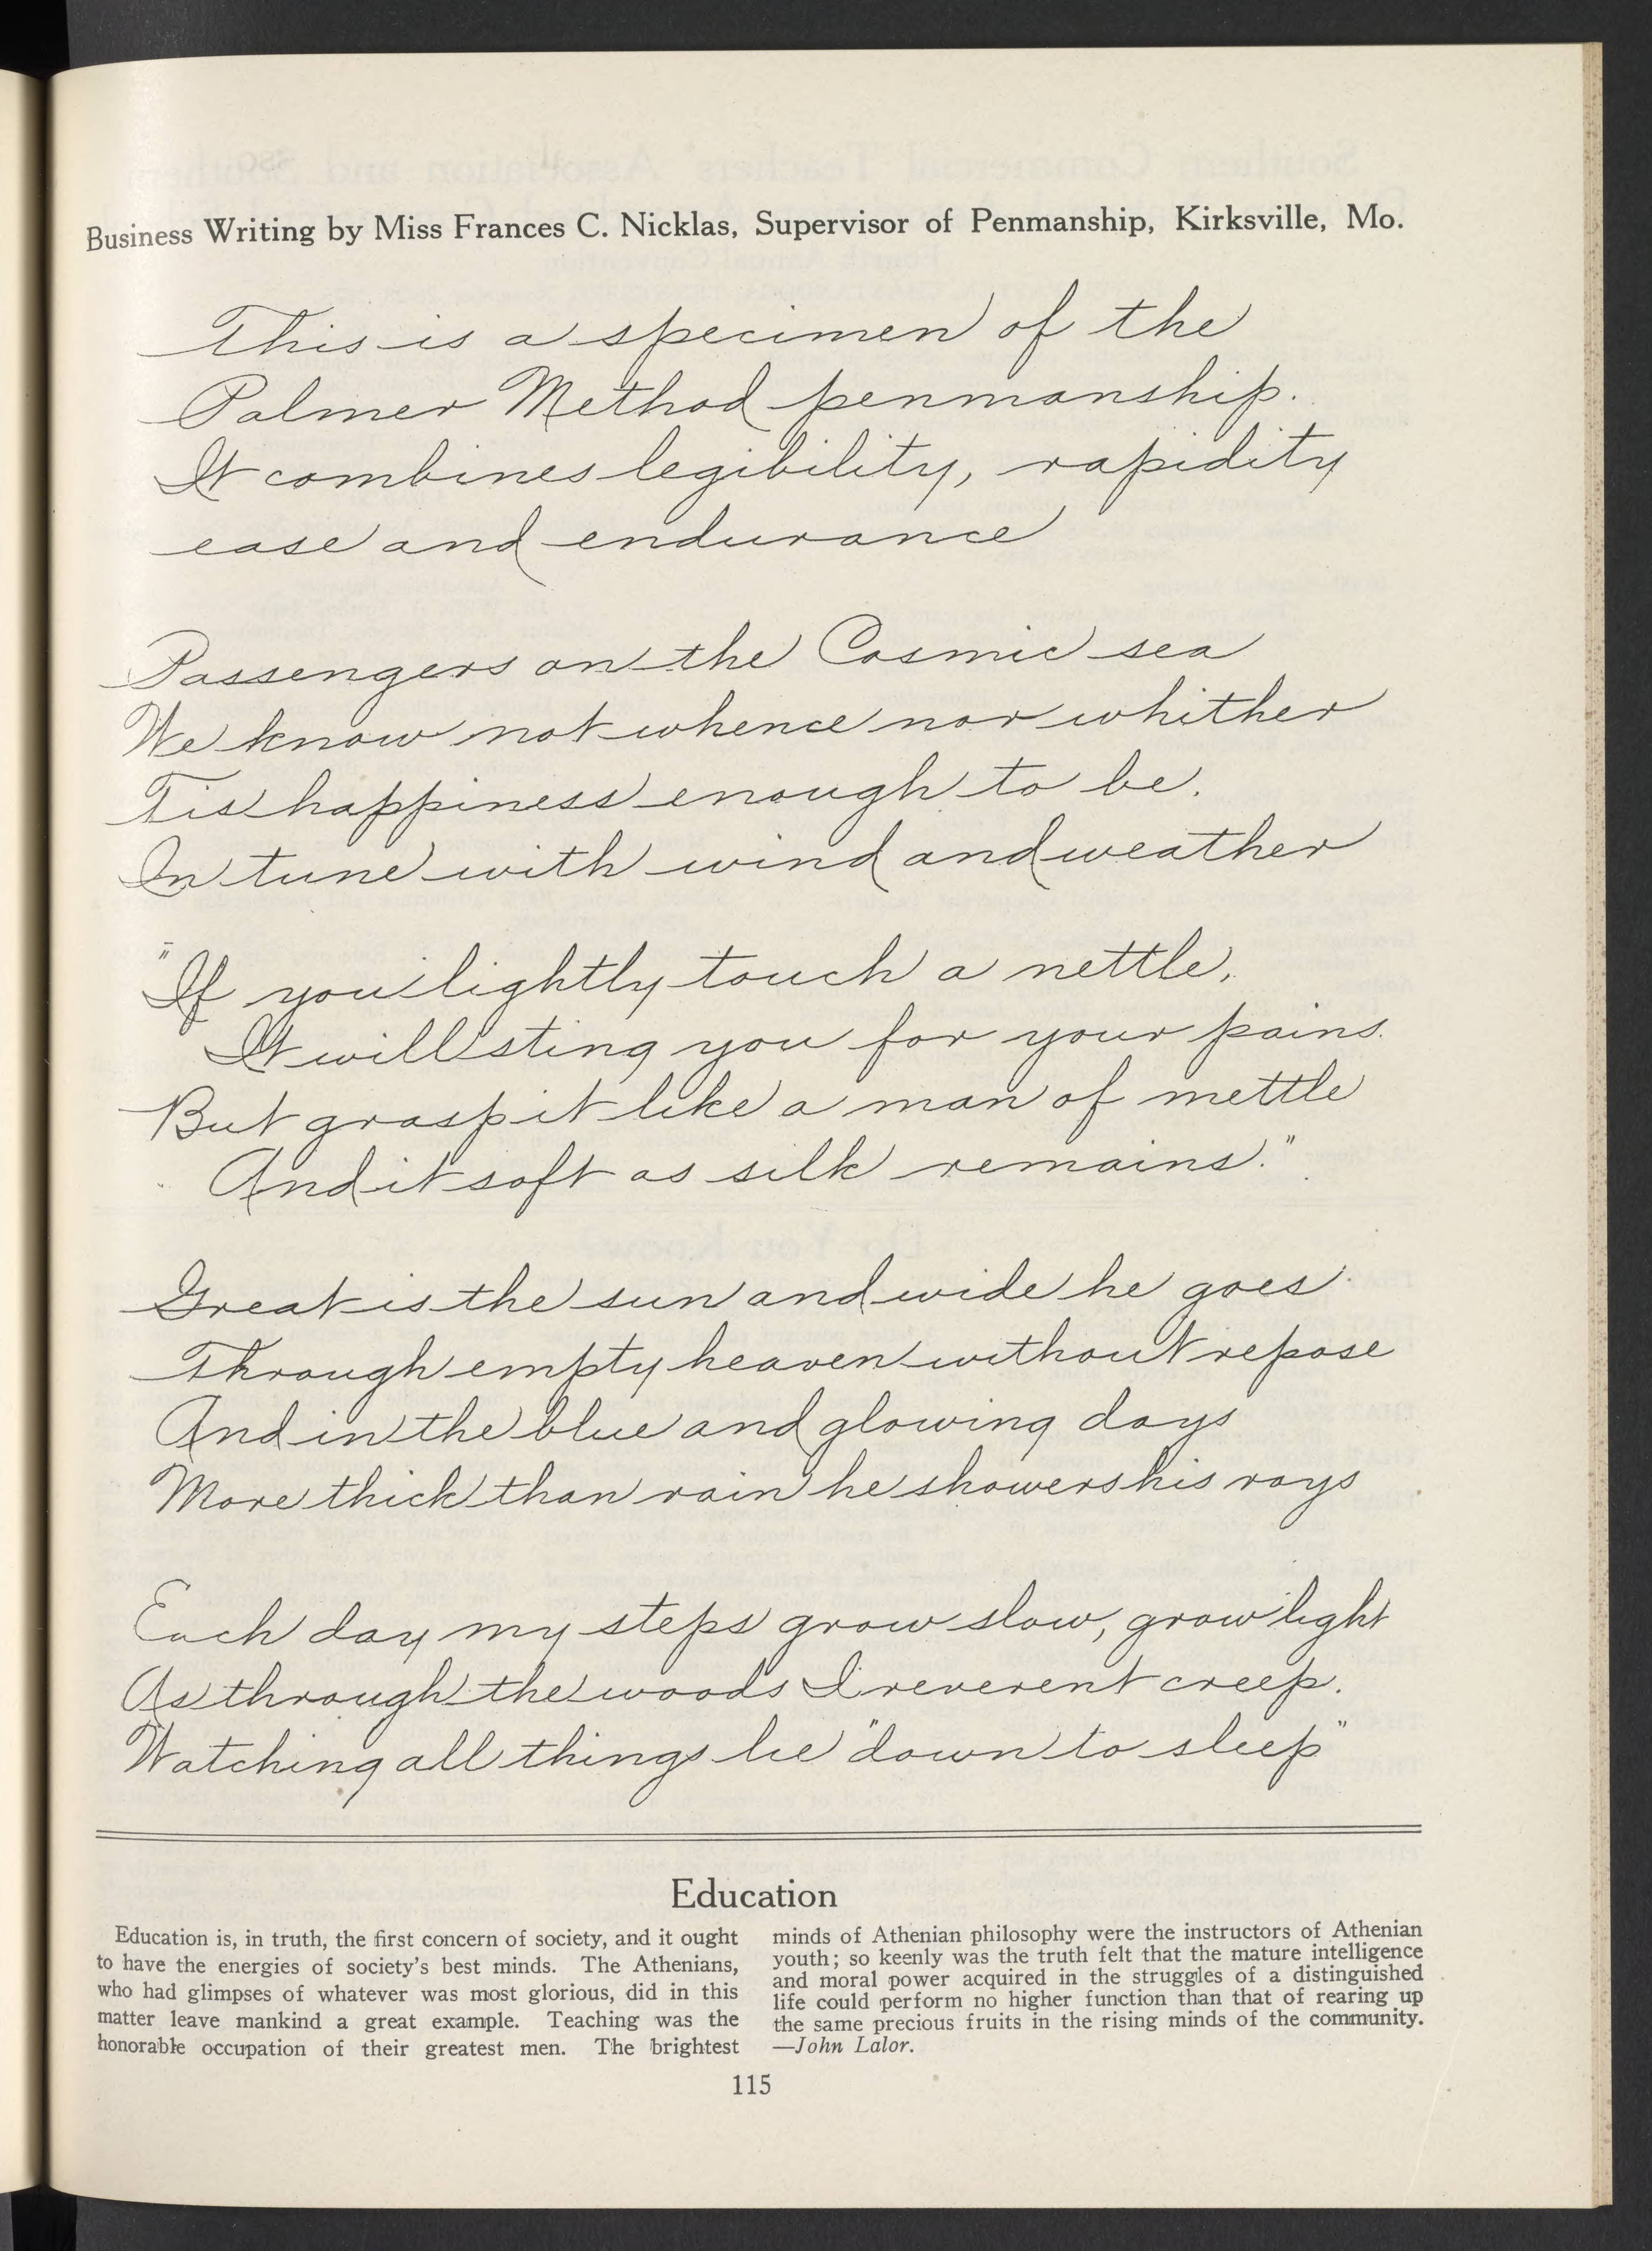 Business Writing by Miss Frances C. Nicklas, Supervisor of Penmanship, Kirksville, Mo.
This is a specimen of the
Palmer Method penmanship.
It combines legibility, rapidity
ease and endurance
Passengers on the Cosmic sea
We know not whence nor whither
Tis happiness enough to be.
In tune with wind and weather
"If you lightly touch a nettle,
It will sting you for your pains.
But grasp it like a man of mettle
And it soft as silk remains."
Great is the sun and wide he goes
Through empty heaven without repose
And in the blue and glowing days
More thick than rain he showers his rays
Each day my steps grow slow, grow light
As through the woods I reverent creep.
Watching all things lie "down to sleep"
Education
Education is, in truth, the first concern of society, and it ought
to have the energies of society's best minds. The Athenians,
who had glimpses of whatever was most glorious, did in this
matter leave mankind a great example. Teaching was the
honorable occupation of their greatest men. The brightest
minds of Athenian philosophy were the instructors of Athenian
youth; so keenly was the truth felt that the mature intelligence
and moral power acquired in the struggles of a distinguished
life could perform no higher function than that of rearing up
the same precious fruits in the rising minds of the community.
—John Lalor.
115